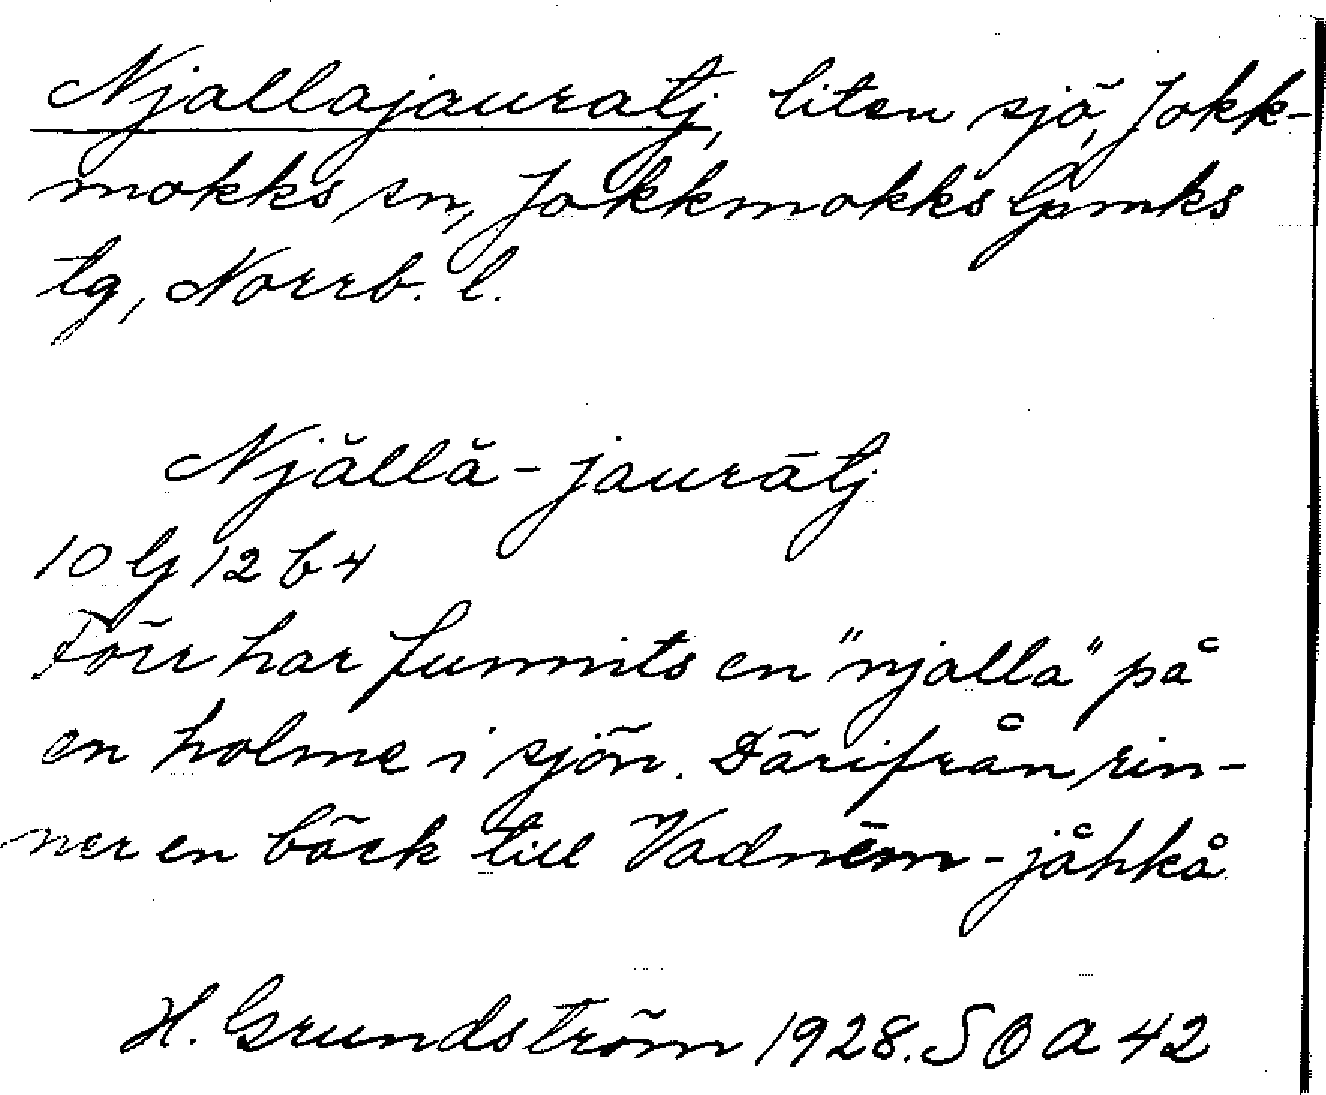 Njallajauratj, liten sjö, Jokk-
mokks sn, Jokkmokks lpmks
tg, Norrb. l.
Njăllă-jaurātj
10 G 12 b 4
Förr har funnits en "njalla" på
en holme i sjön. Därifrån rin-
ner en bäck till Vadnēm-jåhkå
H. Grundström 1928. SOA 42